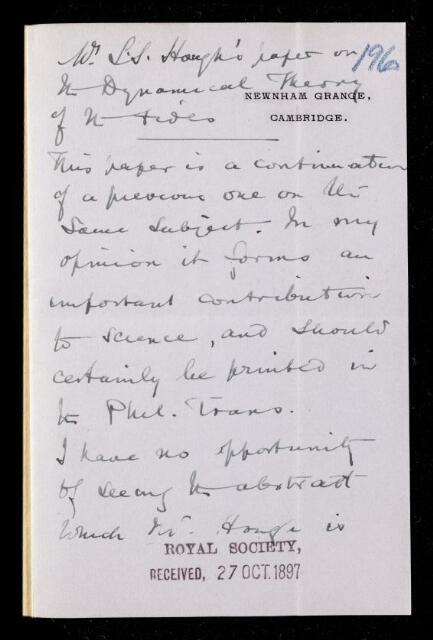 Mr S.S. Hough's paper on
196
the Dynamical Theory
NEWNHAM GRANGE,
of the tides
CAMBRIDGE.
This paper is a continuation
of a previous one on the
same subject. In my
opinion it forms an
important contribution
to science, and should
certainly be printed in
the Phil. Trans.
I have no opportunity
of seeing the abstract
which Mr. Hough is
ROYAL SOCIETY,
RECEIVED, 27 OCT. 1897